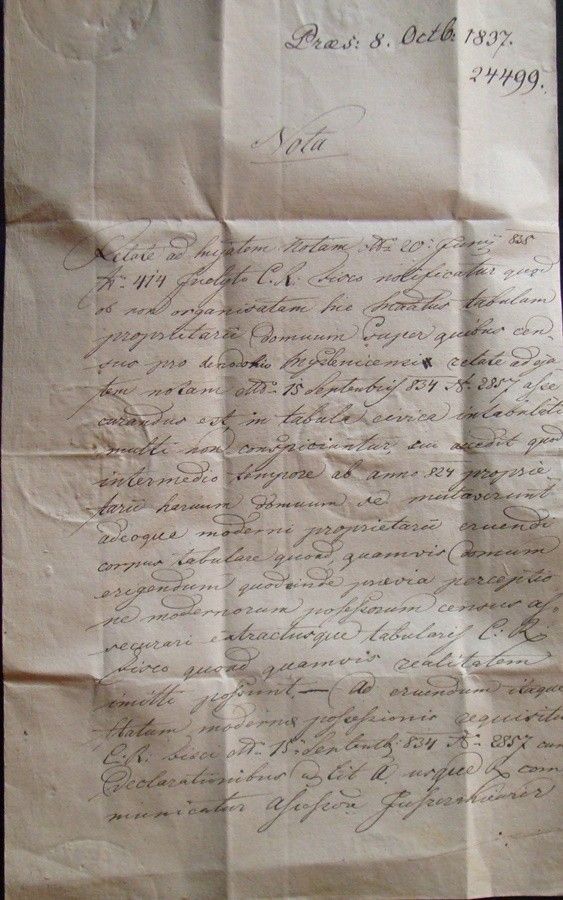 Praes: 8. Octb. 1837.
24499.
Nota
Relate ad hujatem Notam ddo 20: Junij 835
No 414 Inclyto C. R. Fisco notificatur quod
ob non organisatam hic tabulam
proprietarii domuum super quibus cen-
sus pro Myslenicensi relate ad eja
tem notam ddo 15 Septembris 834 No 2857 asse
curandus est, in tabula civica intabulati
multi non conspiciuntur, cui accedit quod
intermedio tempore ab anno 824 proprie
tarii harum domuum se mutaverunt
adeoque moderni proprietarii eruendi
corpus tabulare quoad quamvis domum
erigendum quodsinde praevia perceptio
ne modernorum possessorum census as-
securari extractusque tabulares C. R.
Fisco quoad quamvis realitatem
imitti possunt — Ad eruendum itaque
statum moderne possessionis requisitio
C. R. Fisci ddo 15. Septemb: 834 No 2357 cum
Declarationibus a Lit A. usque com
municatur